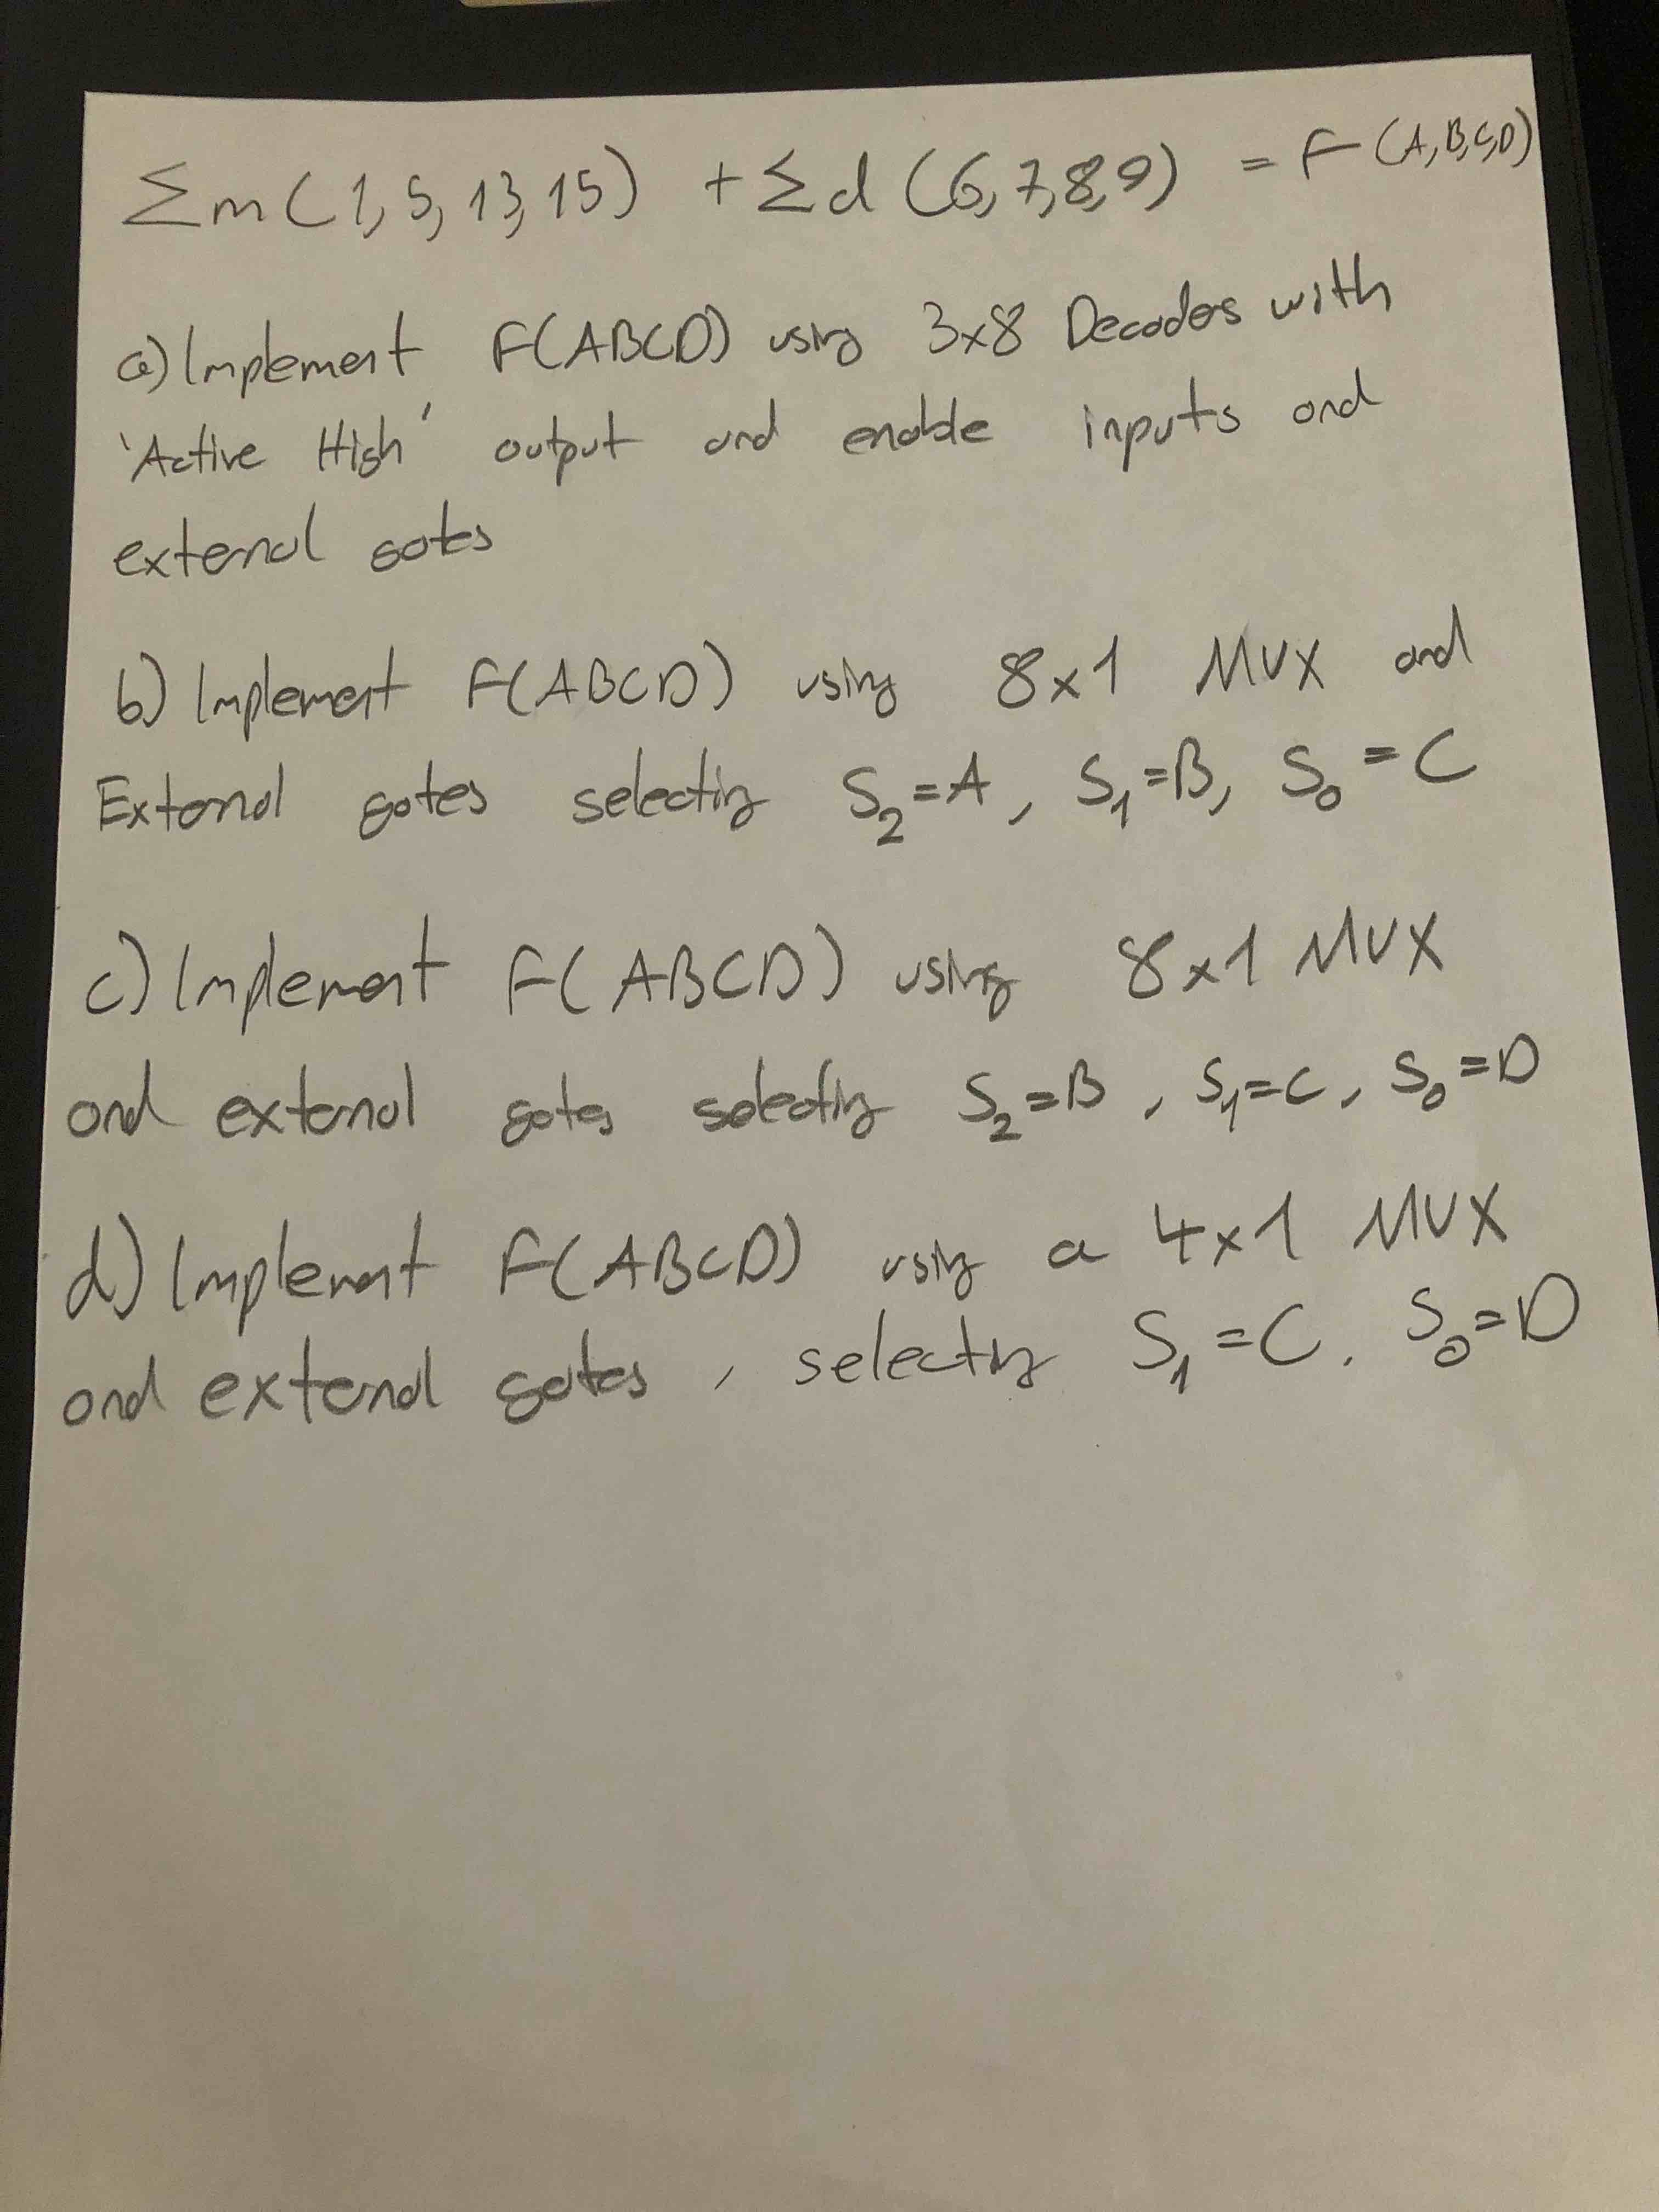 Σm(1,5,13,15) + Σd(6,7,8,9) = F(A,B,C,D)
a) Implement F(ABCD) using 3x8 Decoders with
'Active High' output and enable inputs and
external gates
b) Implement F(ABCD) using 8x1 MUX and
External gates selecting S₂=A, S₁=B, S₀=C
c) Implement F(ABCD) using 8x1 MUX
and external gates selecting S₂=B, S₁=C, S₀=D
d) Implement F(ABCD) using a 4x1 MUX
and external gates, selecting S₁=C. S₀=D